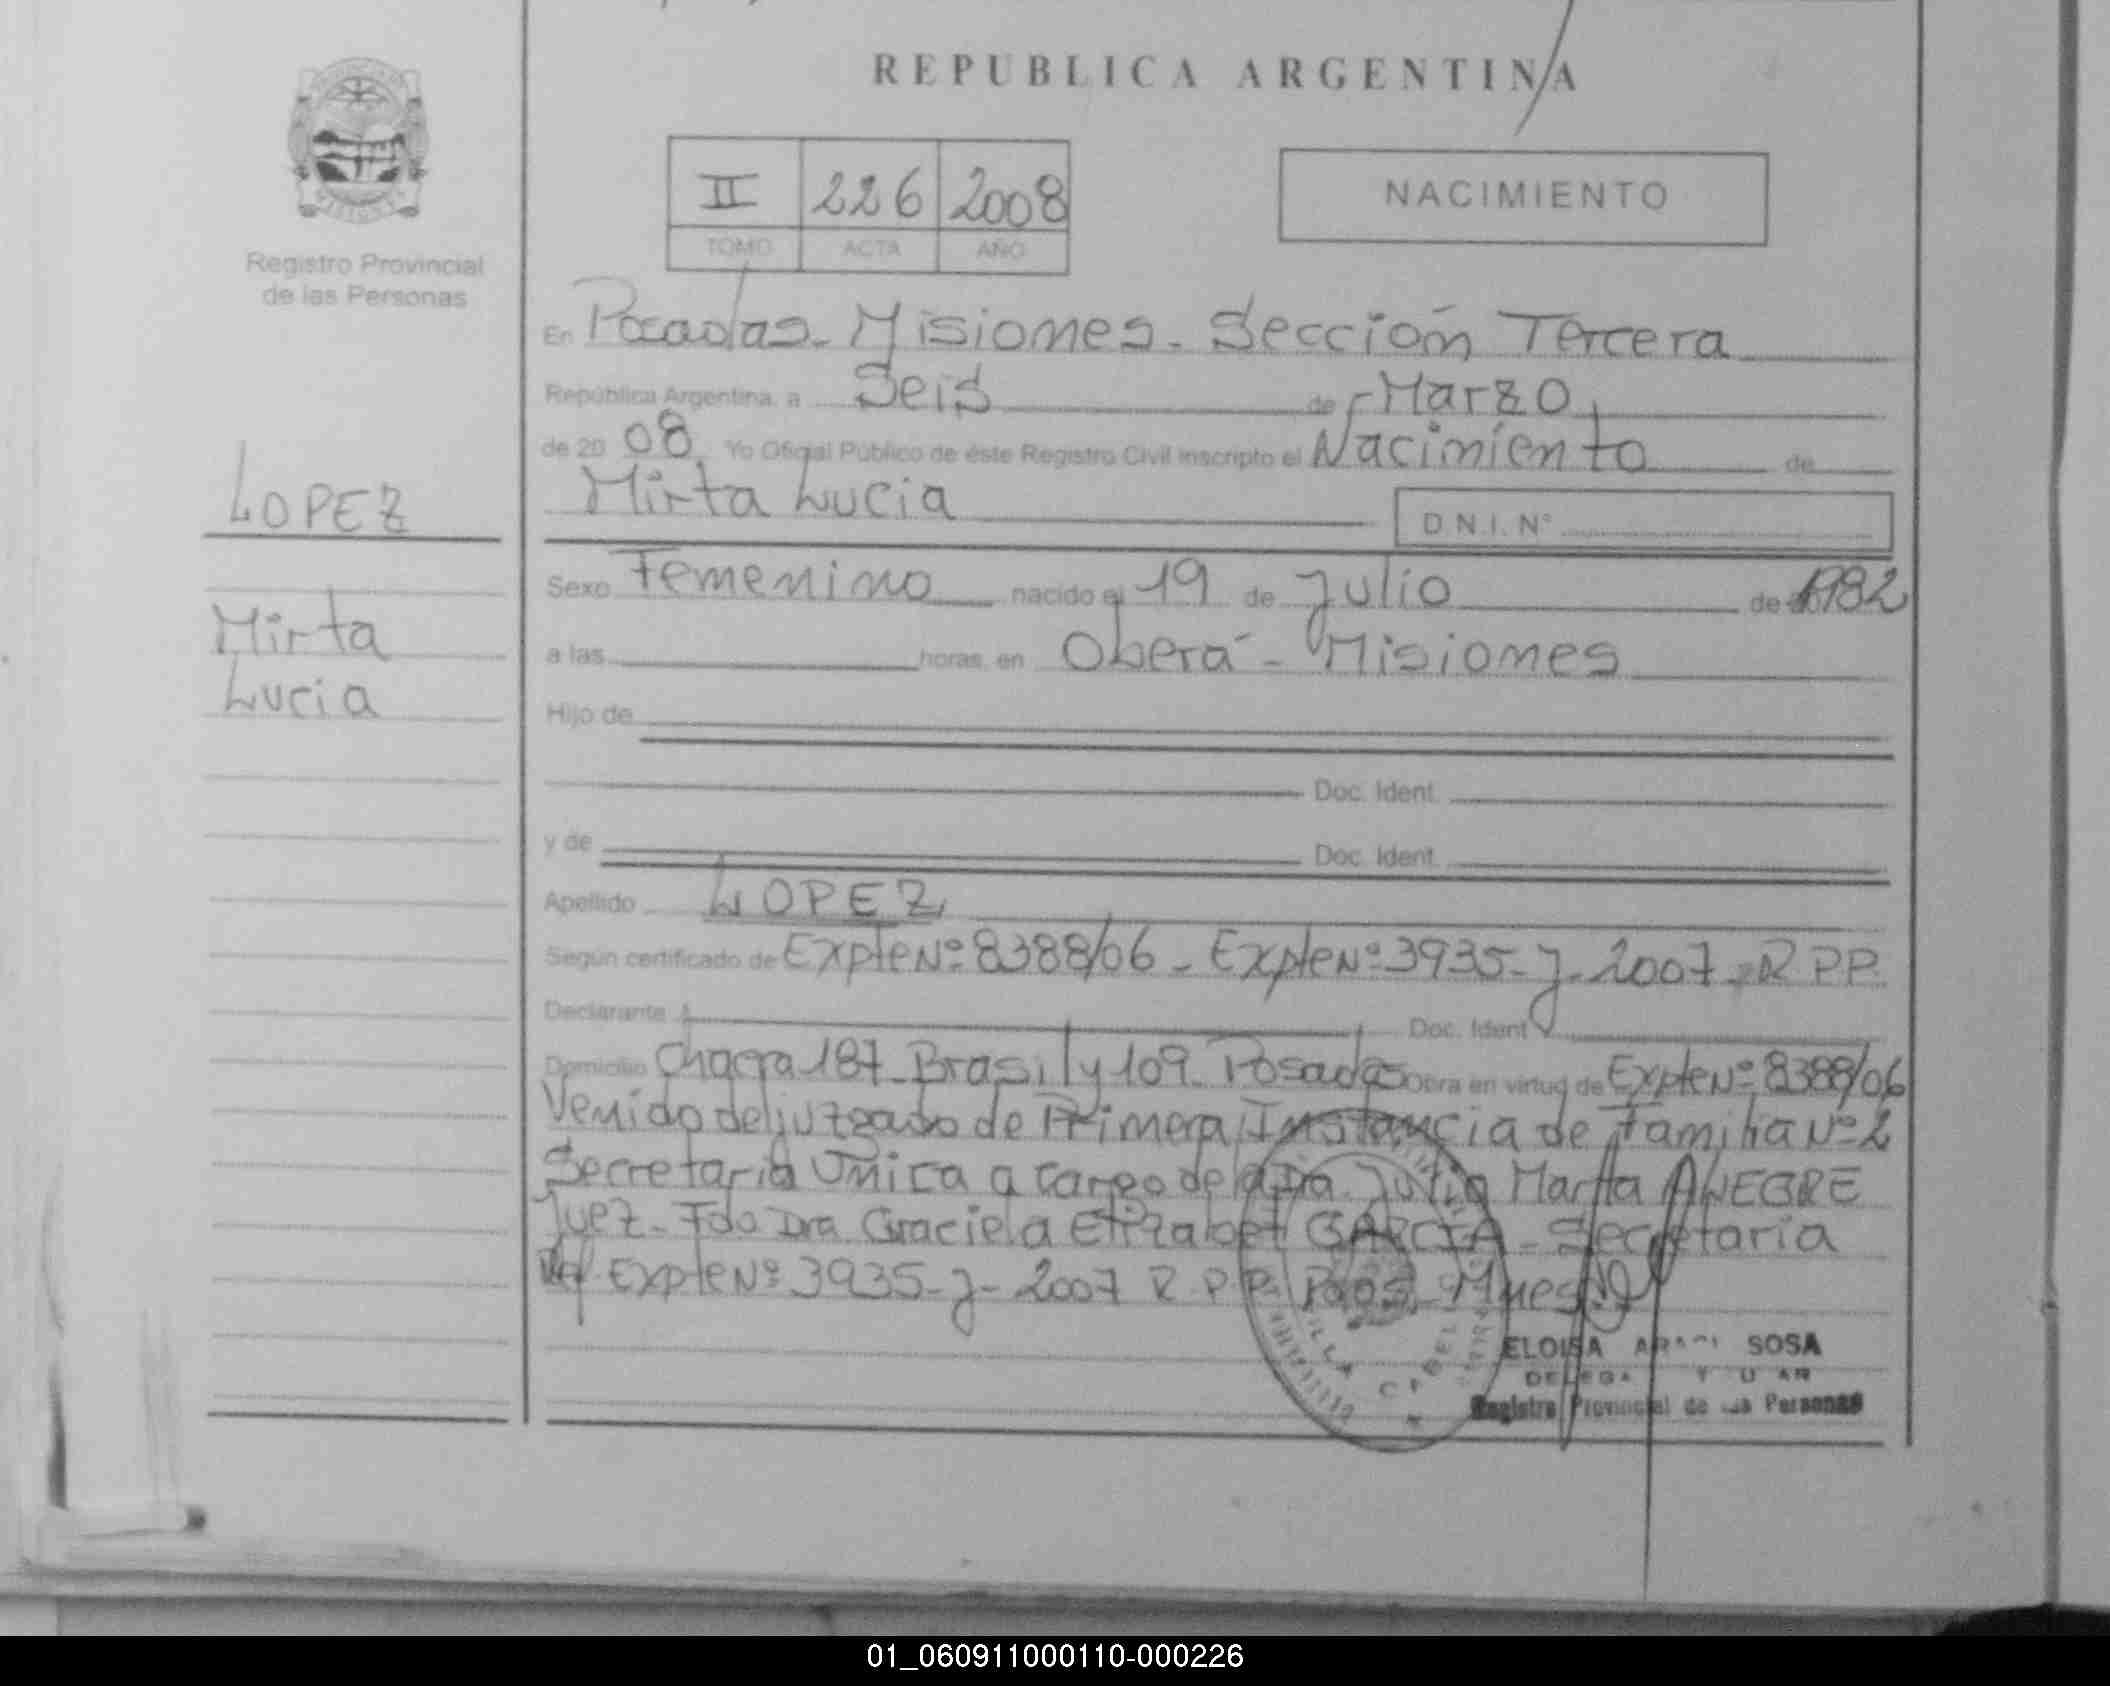 REPUBLICA ARGENTINA
II 226 2008
TOMO ACTA AÑO
NACIMIENTO
Registro Provincial
de las Personas
LOPEZ
Mirta
Lucia
En Posadas - Misiones - Sección Tercera
República Argentina, a Seis de Marzo
de 20 08 Yo Oficial Público de éste Registro Civil inscripto el Nacimiento de
Mirta Lucia D.N.I. N°
Sexo Femenino nacido el 19 de Julio de 1982
a las horas, en Oberá - Misiones
Hijo de
Doc. Ident.
y de Doc. Ident.
Apellido LOPEZ
Según certificado de Expte Nº 8388/06 - Expte Nº 3935-J-2007-R PP.
Declarante Doc. Ident
Domicilio Chacra 187 - Brasil y 109 - Posadas Obra en virtud de Expte Nº 8388/06
Venido del juzgado de Primera Instancia de Familia Nº 2
Secretaria Unica a cargo de la Dra. Julia Marta ALEGRE
Juez - Fdo Dra Graciela Elizabet GARCIA - Secretaria
Ref. Expte Nº 3935-J-2007 R.P.P.
VILLA CABELLO
ELOISA SOSA
Registro Provincial de las Personas
01_060911000110-000226